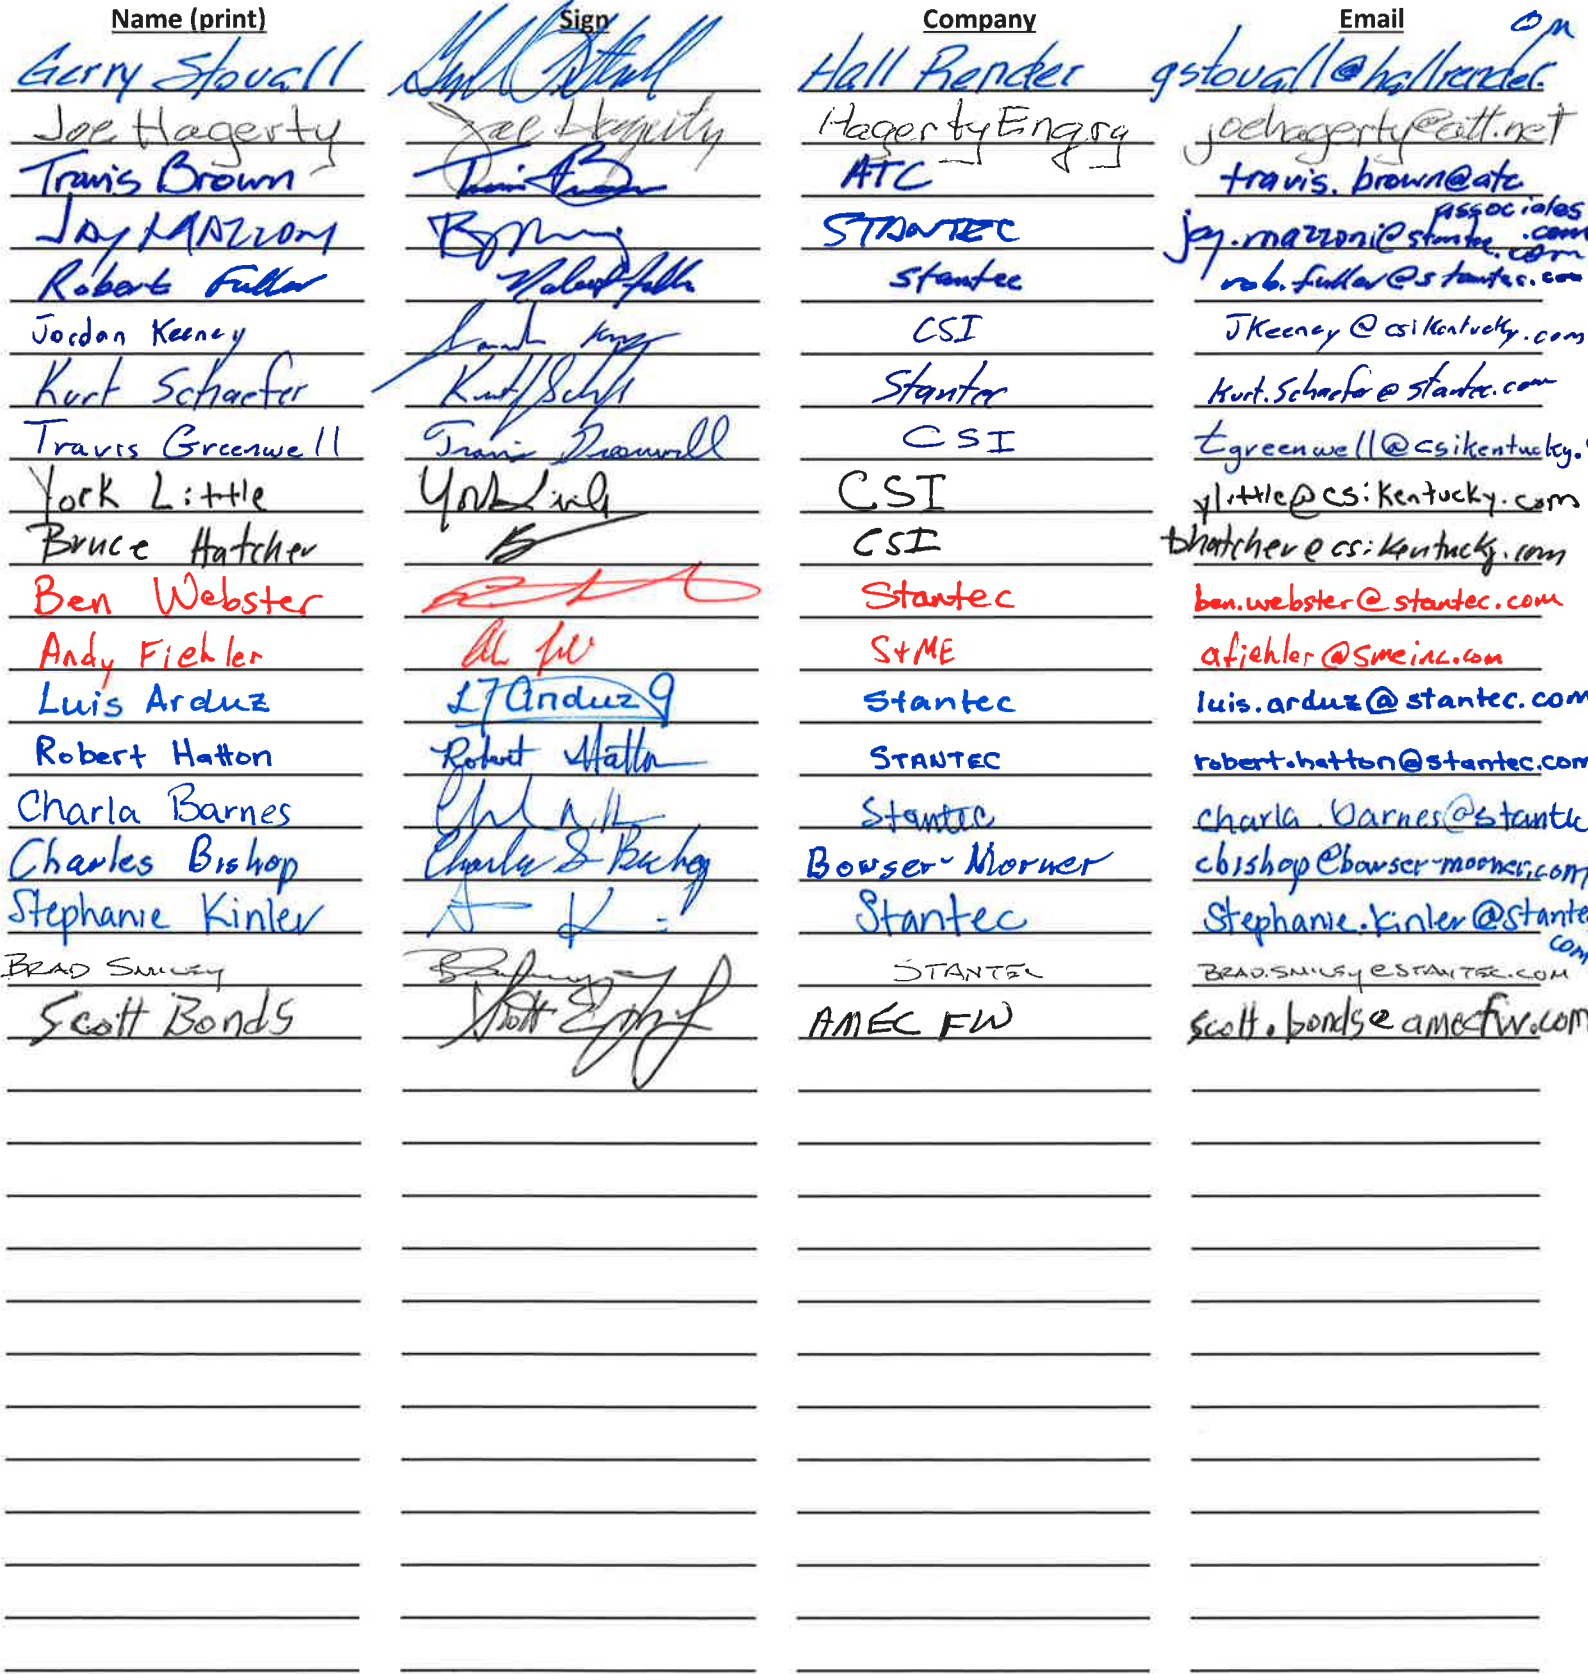 Name (print) Sign Company Email
Gerry Stovall Hall Render gstovall@hallrender.com
Joe Hagerty Joe Hagerty Hagerty Engrg joehagerty@att.net
Travis Brown ATC travis.brown@atc associates .com
Jay Mazzoni Stantec jay.mazzoni@stantec.com
Robert Fuller Stantec rob.fuller@stantec.com
Jordan Keeney CSI JKeeney@csikentucky.com
Kurt Schaefer Stantec Kurt.Schaefer@stantec.com
Travis Greenwell Travis Greenwell CSI tgreenwell@csikentucky.
York Little York Little CSI ylittle@csikentucky.com
Bruce Hatcher CSI bhatcher@csikentucky.com
Ben Webster Stantec ben.webster@stantec.com
Andy Fiehler S+ME afiehler@smeinc.com
Luis Arduz Stantec luis.arduz@stantec.com
Robert Hatton Robert Hatton STANTEC robert.hatton@stantec.com
Charla Barnes Stantec charla.barnes@stantec
Charles Bishop Charles S Bishop Bowser-Morner cbishop@bowser-morner.com
Stephanie Kinler Stantec Stephanie.kinler@stantec com
BRAD SMILEY STANTEC BRAD.SMILEY@STANTEC.COM
Scott Bonds AMEC FW scott.bonds@amecfw.com